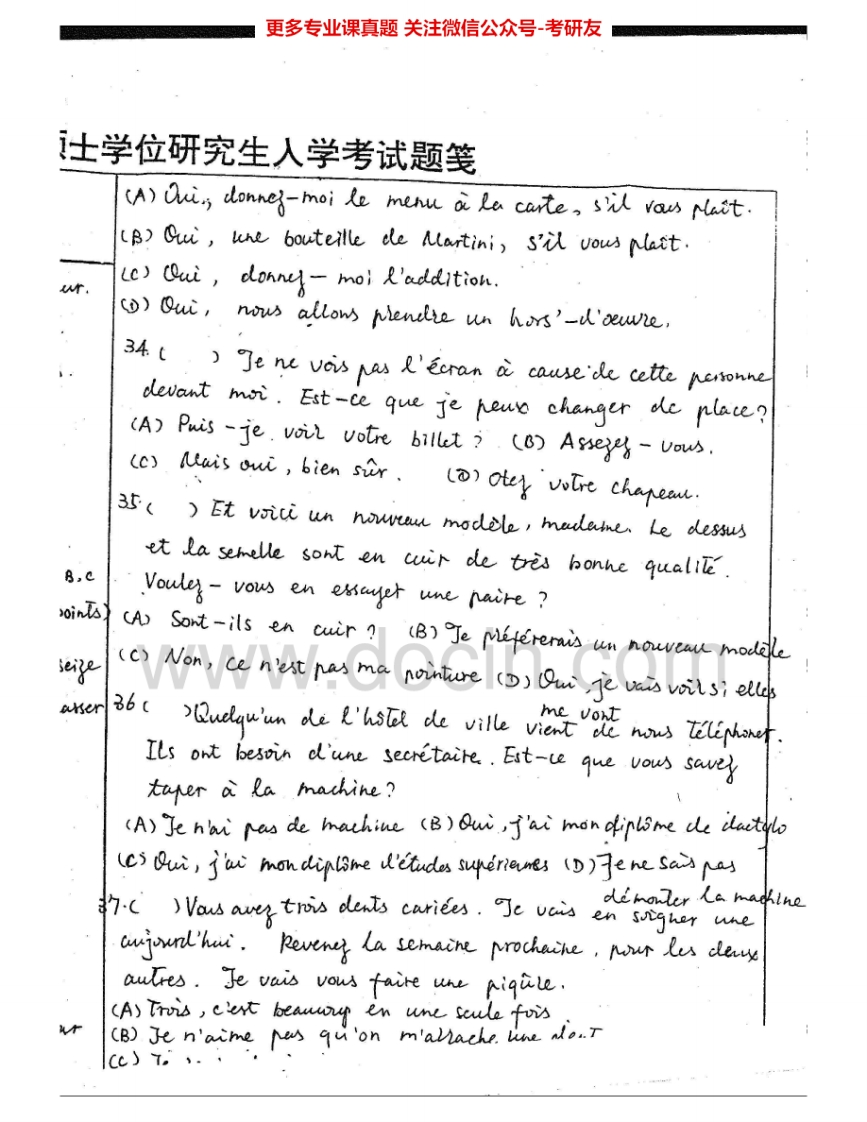 更多专业课真题 关注微信公众号-考研友
士学位研究生入学考试题笺
(A) Oui, donnez-moi le menu à la carte, s'il vous plaît.
(B) Oui, une bouteille de Martini, s'il vous plaît.
(C) Oui, donnez-moi l'addition.
(D) Oui, nous allons prendre un hors'-d'oeuvre.
34. ( ) Je ne vois pas l'écran à cause de cette personne
devant moi. Est-ce que je peux changer de place?
(A) Puis-je voir votre billet? (B) Assezez-vous.
(C) Mais oui, bien sûr. (D) Otez votre chapeau.
35. ( ) Et voici un nouveau modèle, madame. Le dessus
et la semelle sont en cuir de très bonne qualité.
Voulez-vous en essayer une paire?
(A) Sont-ils en cuir? (B) Je préférerais un nouveau modèle
(C) Non, ce n'est pas ma pointure (D) Oui, je vais voir si elles
me vont
36 ( ) Quelqu'un de l'hôtel de ville vient de nous téléphoner.
Ils ont besoin d'une secrétaire. Est-ce que vous savez
taper à la machine?
(A) Je n'ai pas de machine (B) Oui, j'ai mon diplôme de dactylo
(C) Oui, j'ai mon diplôme d'études supérieures (D) Je ne sais pas
démonter la machine
37. ( ) Vous avez trois dents cariées. Je vais en soigner une
aujourd'hui. Revenez la semaine prochaine, pour les deux
autres. Je vais vous faire une piqûre.
(A) Trois, c'est beaucoup en une seule fois
(B) Je n'aime pas qu'on m'arrache une
(C)
B, C
points)
seize
www.docin.com